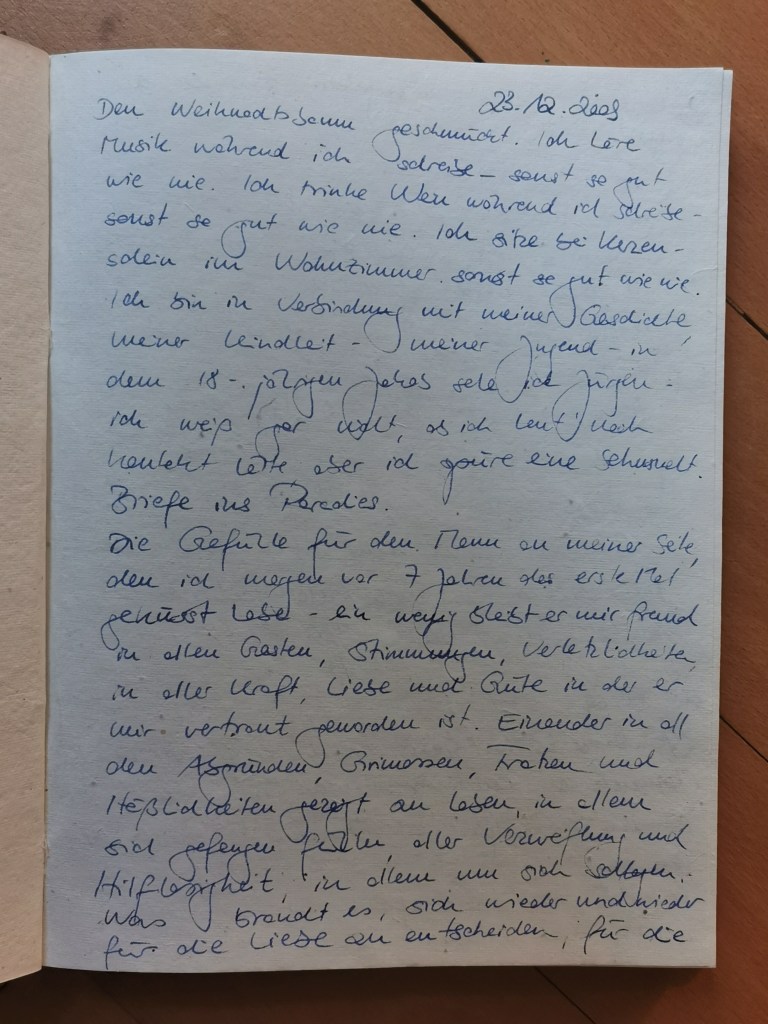 23.12.2008
Den Weihnachtsbaum geschmückt. Ich höre
Musik während ich schreibe – sonst so gut
wie nie. Ich trinke Wein während ich schreibe –
sonst so gut wie nie. Ich sitze bei Kerzen-
schein im Wohnzimmer. sonst so gut wie nie.
Ich bin in Verbindung mit meiner Geschichte,
meiner Kindheit – meiner Jugend – in
dem 18-jährigen sehe ich Jürgen –
ich weiß gar nicht, ob ich heut' noch
Kontakt hätte aber ich spüre eine Sehnsucht.
Briefe ins Paradies.
Die Gefühle für den Mann an meiner Seite,
den ich morgen vor 7 Jahren das erste Mal
geküsst habe – ein wenig bleibt er mir fremd
in allen Gesten, Stimmungen, Verletzlichkeiten,
in aller Kraft, Liebe und Güte in der er
mir vertraut geworden ist. Einander in all
den Abgründen, Grimassen, Fratzen und
Häßlichkeiten gezeigt zu haben, in allem
sich gefangen fühlen, aller Verzweiflung und
Hilflosigkeit, in allem um sich schlagen.
Was braucht es, sich wieder und wieder
für die Liebe zu entscheiden, für die